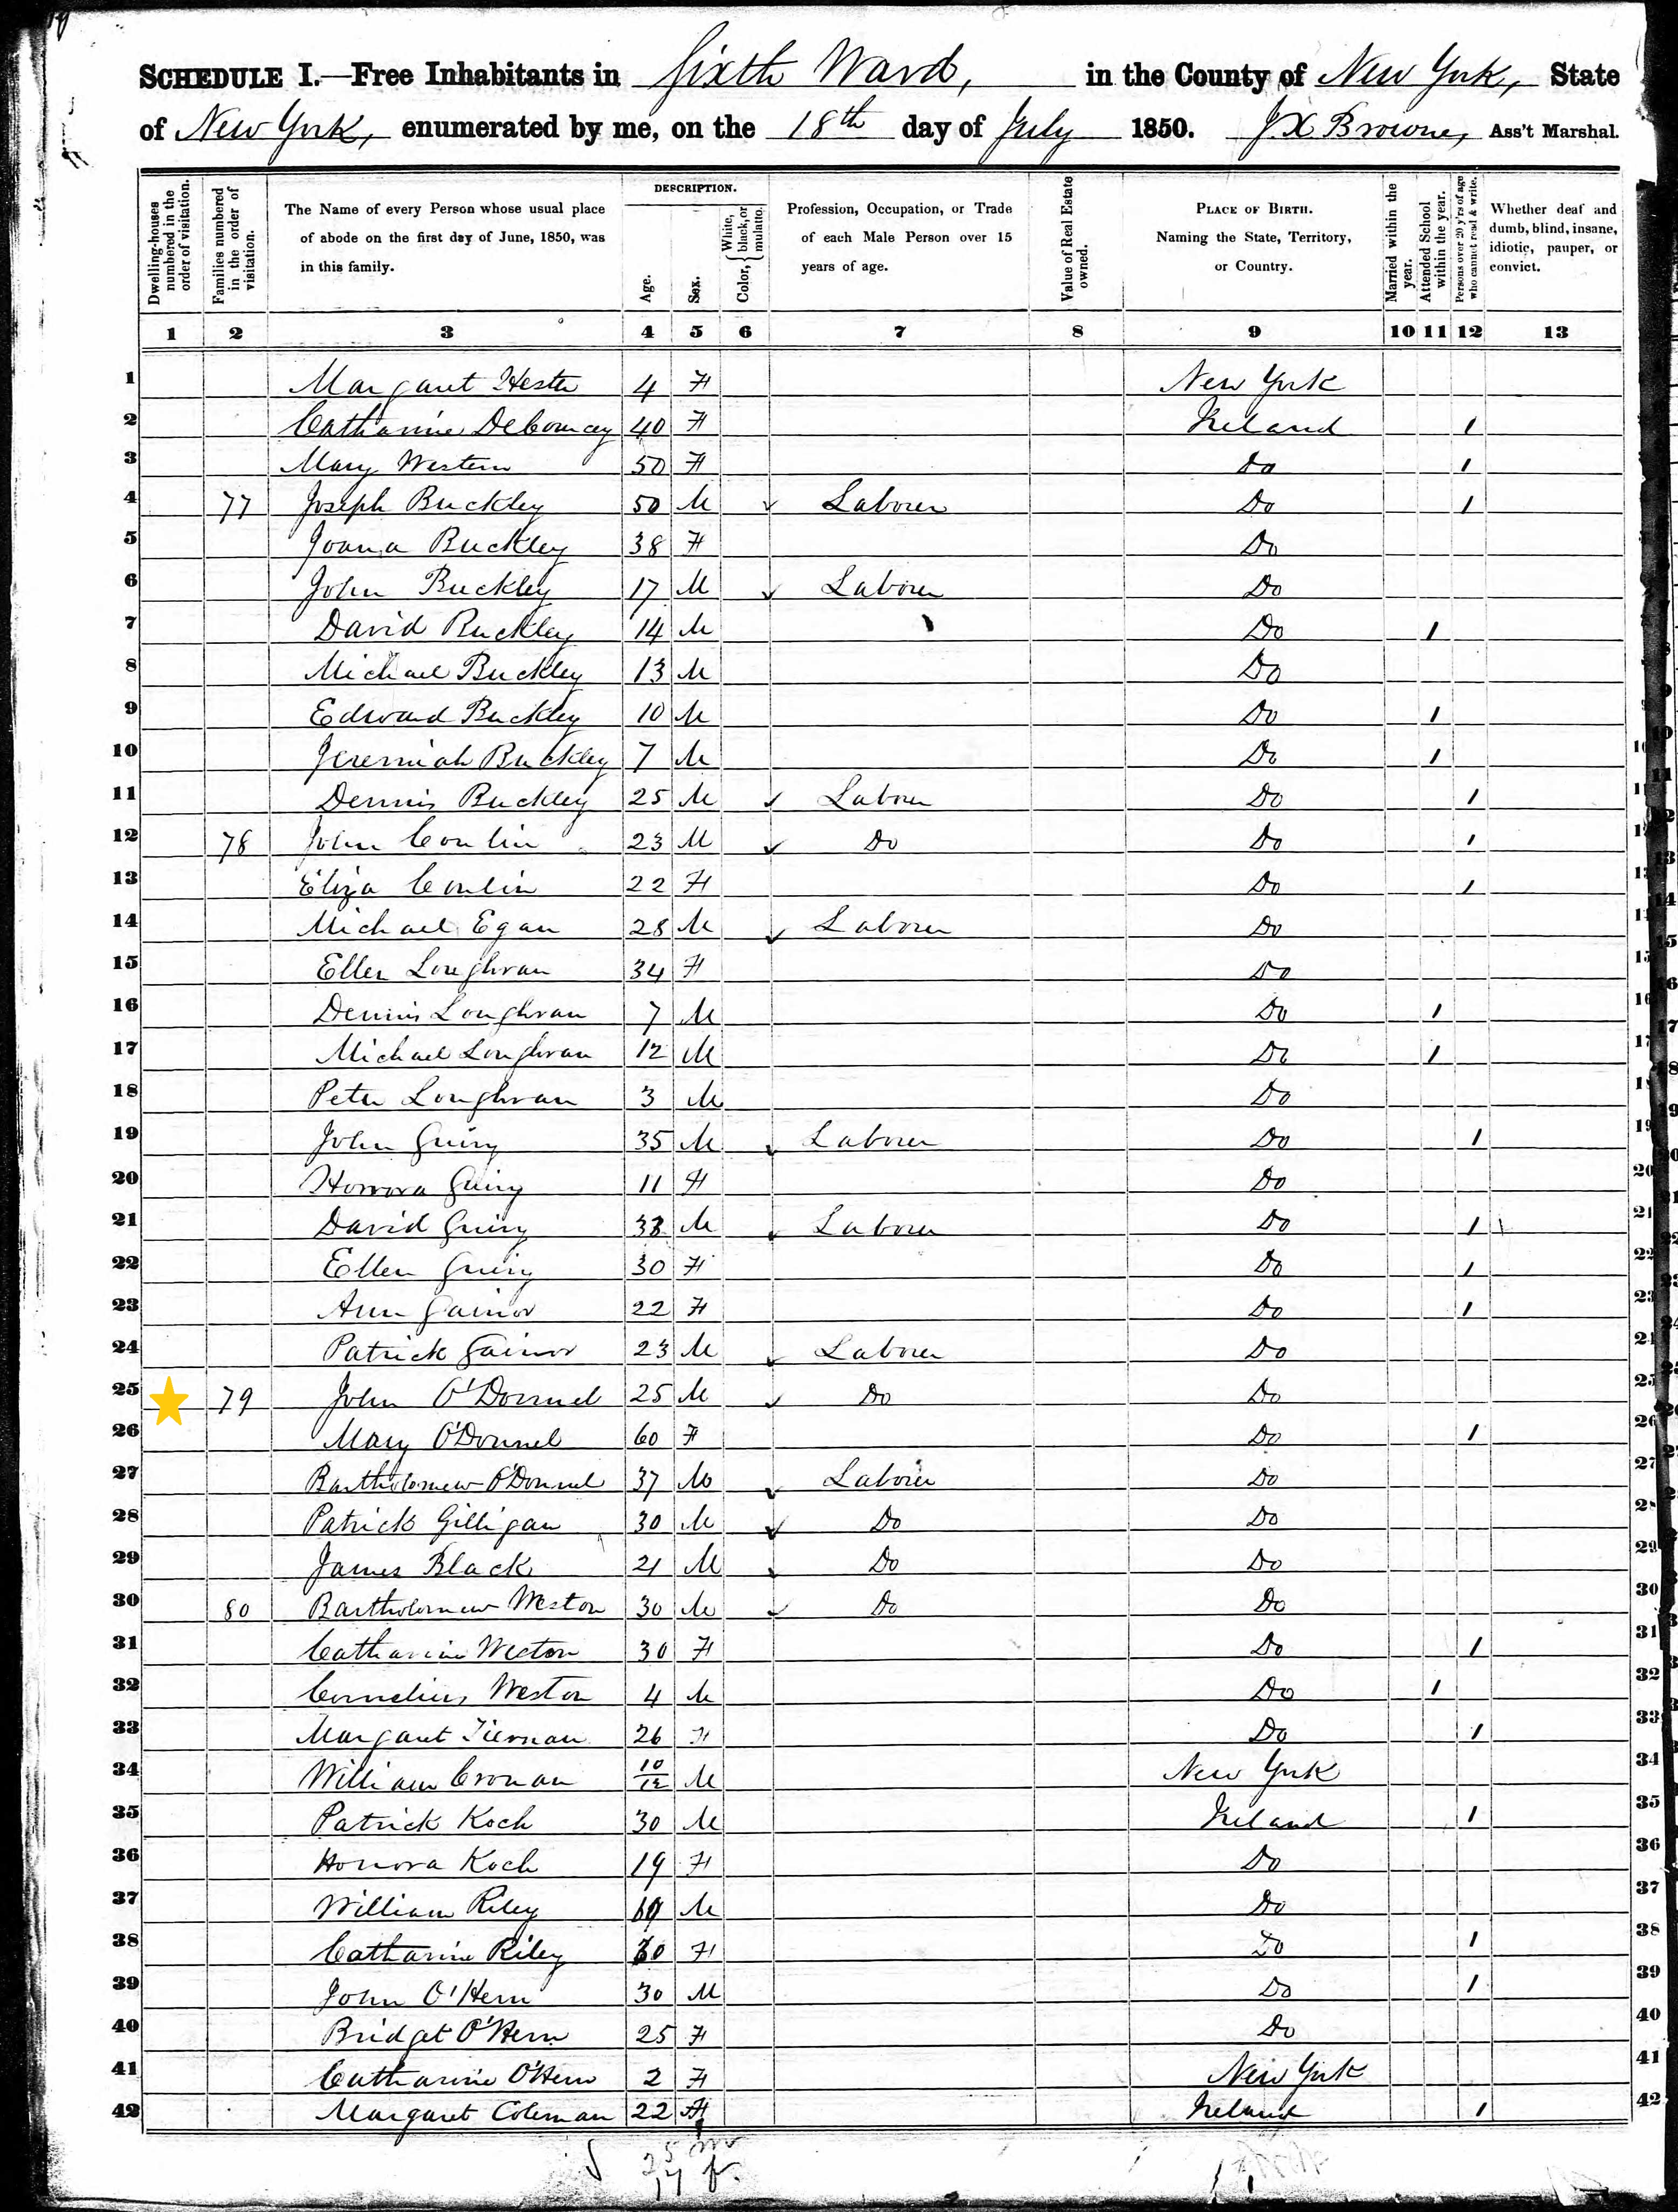 SCHEDULE I.—Free Inhabitants in Sixth Ward, in the County of New York, State
of New York, enumerated by me, on the 18th day of July 1850. J X Browne, Ass't Marshal.
Dwelling-houses numbered in the order of visitation.
Families numbered in the order of visitation.
The Name of every Person whose usual place of abode on the first day of June, 1850, was in this family.
DESCRIPTION.
Age.
Sex.
Color, { White, black, or mulatto.
Profession, Occupation, or Trade of each Male Person over 15 years of age.
Value of Real Estate owned.
PLACE OF BIRTH. Naming the State, Territory, or Country.
Married within the year.
Attended School within the year.
Persons over 20 y'rs of age who cannot read & write.
Whether deaf and dumb, blind, insane, idiotic, pauper, or convict.
1 2 3 4 5 6 7 8 9 10 11 12 13
1 Margaret Hester 4 F New York 1
2 Catharine 40 F Ireland / 2
3 Mary Western 50 F Do / 3
4 77 Joseph Buckley 50 M ✓ Laborer Do /
5 Joana Buckley 38 F Do
6 John Buckley 17 M ✓ Laborer Do
7 David Buckley 14 M Do /
8 Michael Buckley 13 M Do
9 Edward Buckley 10 M Do / 9
10 Jeremiah Buckley 7 M Do / 10
11 Dennis Buckley 25 M ✓ Laborer Do / 11
12 78 John Conlin 23 M ✓ Do Do / 12
13 Eliza Conlin 22 F Do / 13
14 Michael Egan 28 M ✓ Laborer Do 14
15 Ellen Loughran 34 F Do 15
16 Dennis Loughran 7 M Do / 16
17 Michael Loughran 12 M Do / 17
18 Peter Loughran 3 M Do 18
19 John Guiry 35 M ✓ Laborer Do / 19
20 Honora Guiry 11 F Do 20
21 David Guiry 33 M ✓ Laborer Do / 21
22 Ellen Guiry 30 F Do / 22
23 Ann Gainor 22 F Do / 23
24 Patrick Gainor 23 M ✓ Laborer Do 24
25 79 John O'Donnel 25 M ✓ Do Do 25
26 Mary O'Donnel 60 F Do / 26
27 Bartholomew O'Donnel 37 M ✓ Laborer Do 27
28 Patrick Gilligan 30 M ✓ Do Do 28
29 James Black 21 M ✓ Do Do 29
30 80 Bartholomew Weston 30 M ✓ Do Do 30
31 Catharine Weston 30 F Do / 31
32 Cornelius Weston 4 M Do / 32
33 Margaret Tiernan 26 F Do / 33
34 William Cronan 10/12 M New York 34
35 Patrick Koch 30 M Ireland / 35
36 Honora Koch 19 F Do 36
37 William Riley M Do 37
38 Catharine Riley 30 F Do / 38
39 John O'Hern 30 M Do / 39
40 Bridget O'Hern 25 F Do 40
41 Catharine O'Hern 2 F New York 41
42 Margaret Coleman 22 F Ireland / 42
25 m
17 f.